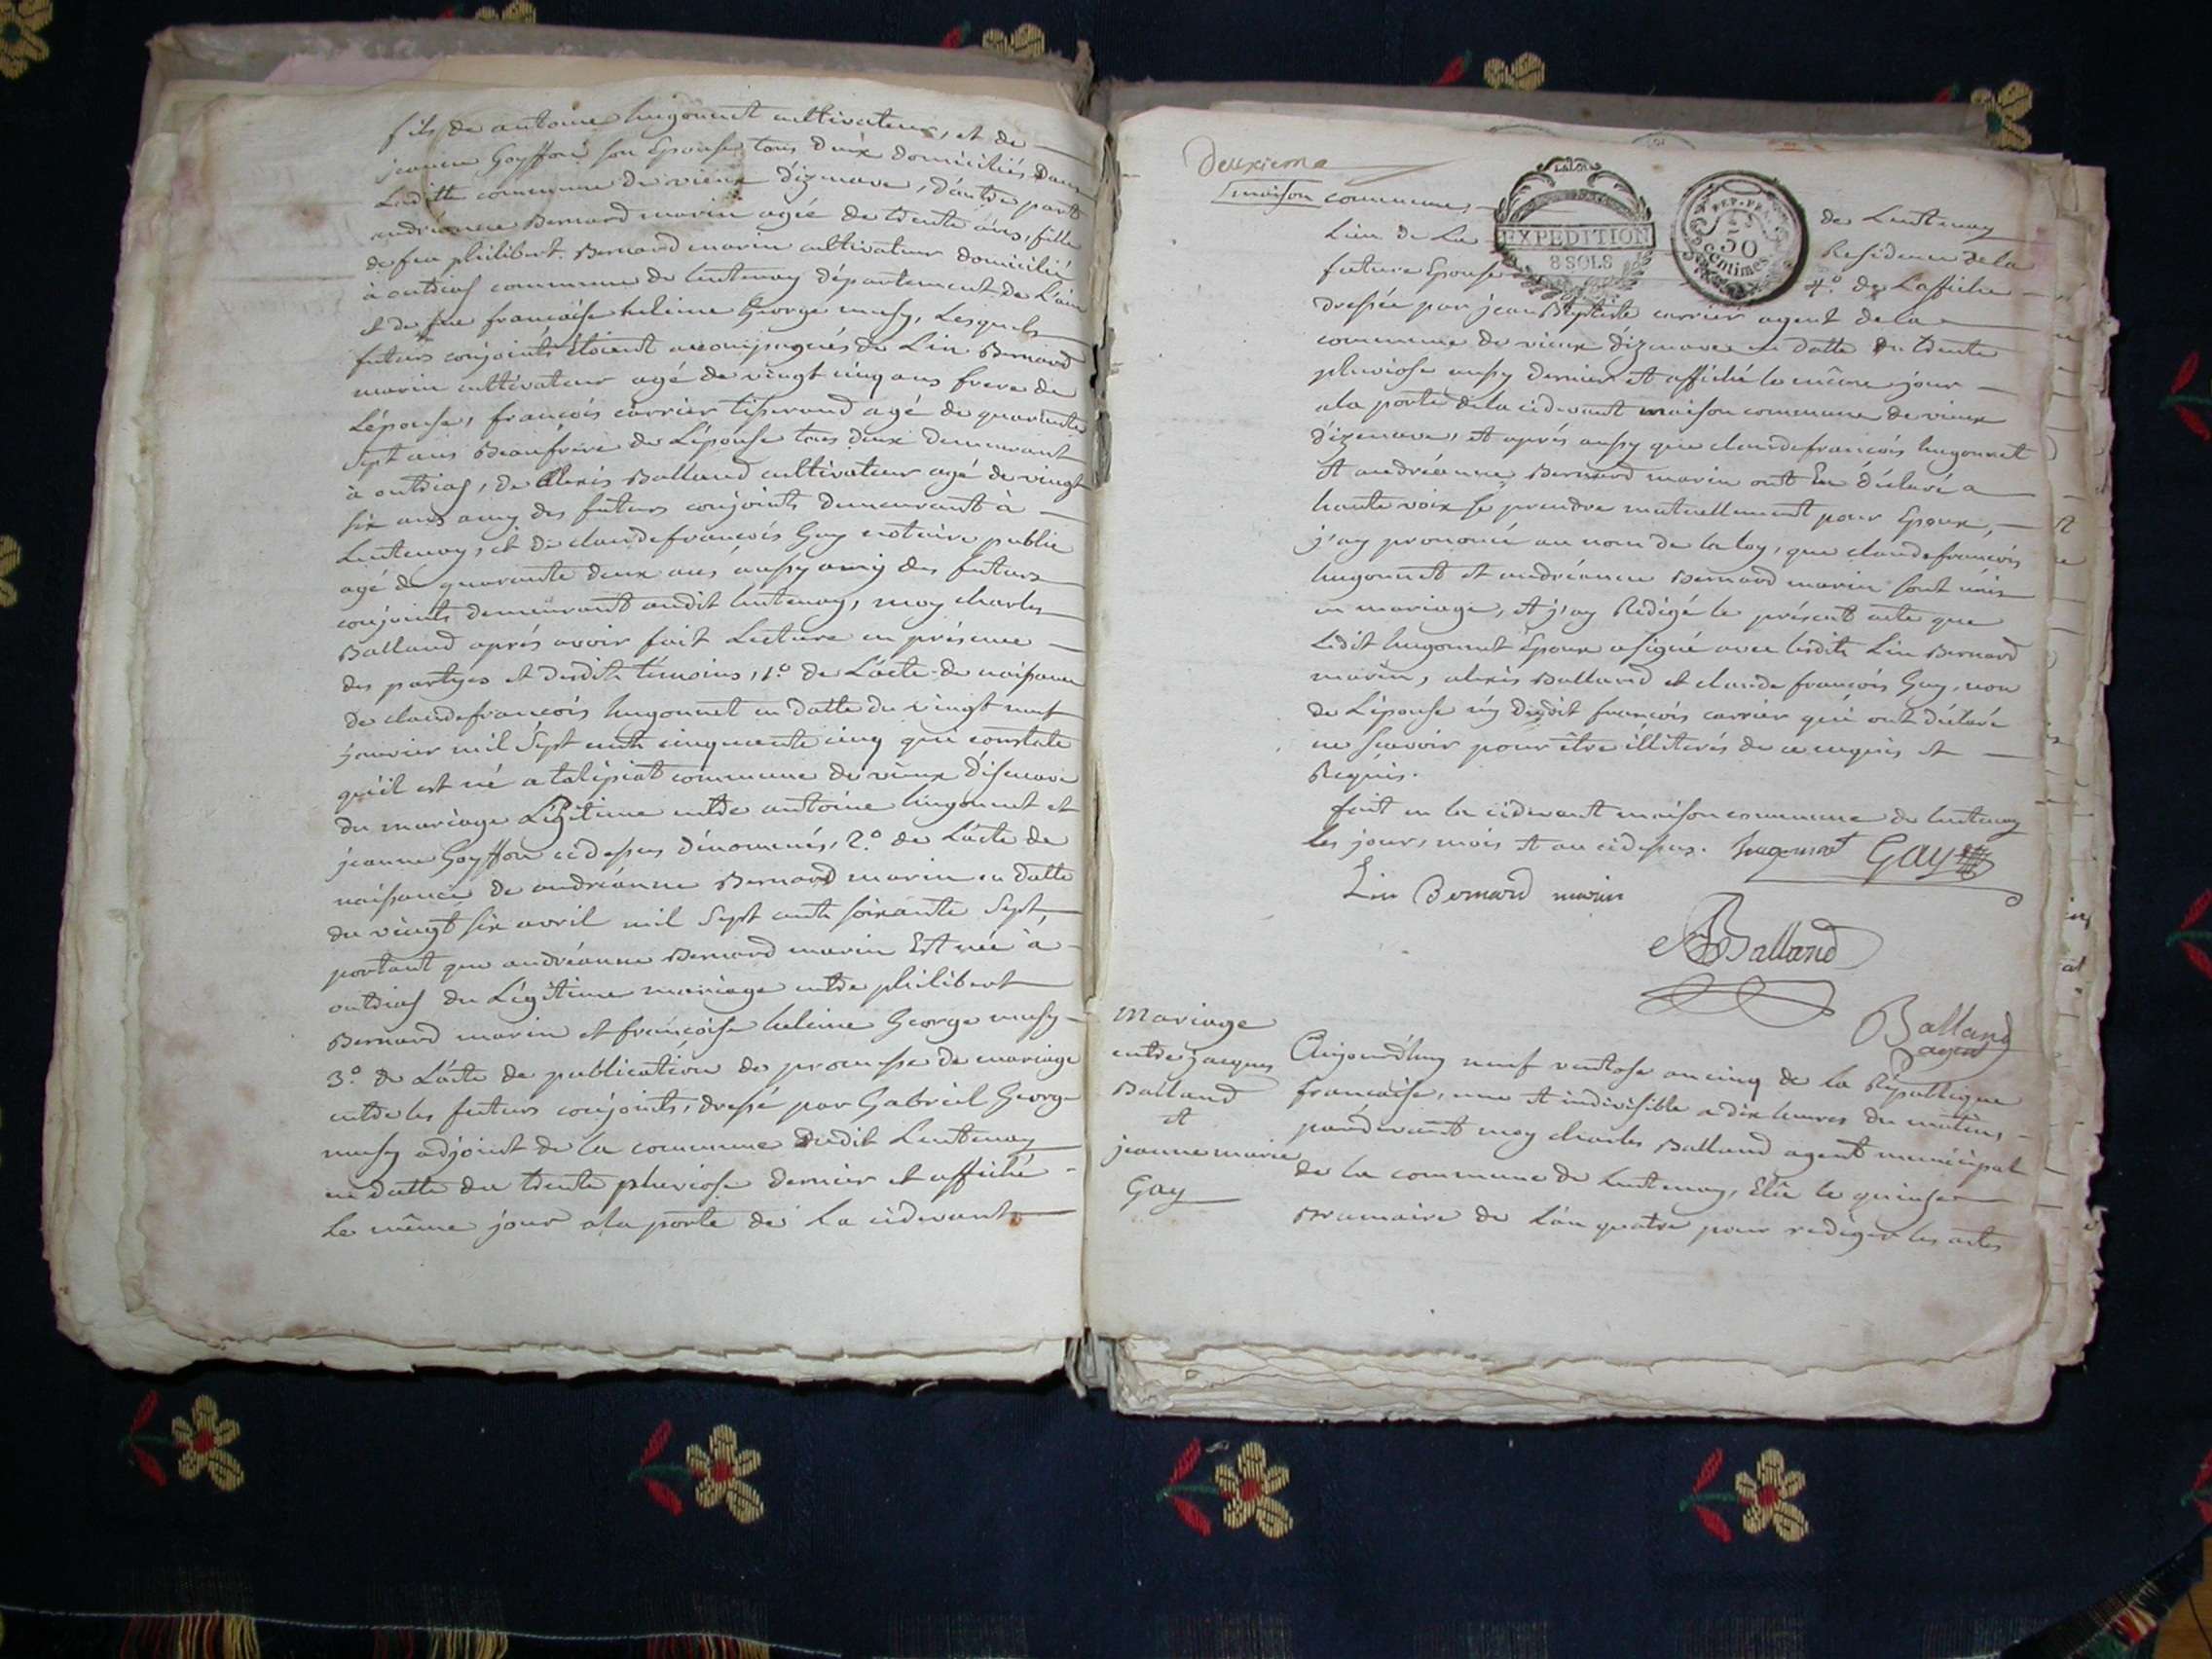 fils de antoine hugonnet cultivateur, et de
jeanne Goyffon son Epouse tous deux domiciliés dans
Laditte commune de vieux d'izenave, d'autre part
andréanne Bernard marin agée de trente ans, fille
de feu philibert Bernard marin cultivateur domicilié
à outriaf commune de lentenay département de L'ain
et de fue francoise heleine George musy, Lesquels
futurs conjoints étoient accompagnés de Lin Bernard
marin cultivateur agé de vingt cinq ans frere de
L'épouse, françois carrier tisserand agé de quarante
Sept ans Beaufrère de L'épouse tous deux demeurant
à outriaf, de Alexis Balland cultivateur agé de vingt
six ans amy des futurs conjoints demeurant à
Lentenay, et de claudefrancois Gay notaire public
agé de quarante deux ans aussy amy des futurs
conjoints demeurant audit lentenay, moy charles
Balland aprés avoir fait Lecture en présence
des partyes et desdits témoins, 1.° de L'acte de naissance
de claudefrancois hugonnet en datte du vingt neuf
janvier mil Sept cents cinquante cinq qui constate
qu'il est né a talipiat commune de vieux d'isenave
du mariage Légitime entre antoine hugonnet et
jeanne Goyffon cidessus dénomenés, 2.° de L'acte de
naissance de andréanne Bernard marin en datte
du vingt six avril mil Sept cents soixante Sept,
portant que andréanne Bernard marin Est née à
outriaf du Légitime mariage entre philibert
Bernard marin et francoise heleine George musy
3.° de L'acte de publication de promesse de mariage
entre les futurs conjoints, dressé par Gabriel George
musy adjoint de la commune dudit Lentenay
en datte du trente pluviose dernier et affiché
le même jour a la porte de La cidevant
Deuxieme
maison commune,
de Lentenay
Lieu de La
EXPEDITION
8 SOLS
REP. FRA.
50
Centimes
Residence de la
future Epouse
4.° de Laffiche
dressée par jean Baptiste carrier agent de la
commune de vieux d'izenave en datte du trente
pluviose aussy dernier et affiché le même jour
a la porte de la cidevant maison commune de vieux
d'izenave, et aprés aussy que claudefrancois hugonnet
et andréanne Bernard marin ont Eu déclaré a
haute voix se prendre mutuellement pour Epoux,
j'ay prononcé au nom de la loy, que claudefrancois
hugonnet et andréanne Bernard marin sont unis
en mariage, et j'ay Redigé le présent acte que
Ledit hugonnet Epoux a signé avec lesdits Lin Bernard
marin, alexis Balland et claude francois Gay, non
de L'épouse ny dudit françois carrier qui ont déclaré
ne scavoir pour être illiterés de ce enquis et
Requis.
fait en la cidevant maison commune de lentenay
les jour, mois et an cidessus. hugonnet GAY
Lin Bernard marin
ABalland
Balland
agent
Mariage
entre jacques
Balland
et
jeanne marie
Gay
Aujourd'huy neuf ventose an cinq de la République
francaise, une et indivisible a dix heures du matin
pardevant moy charles Balland agent municipal
de la commune de lentenay, Elû le quinze
Brumaire de L'an quatre pour rediger les actes